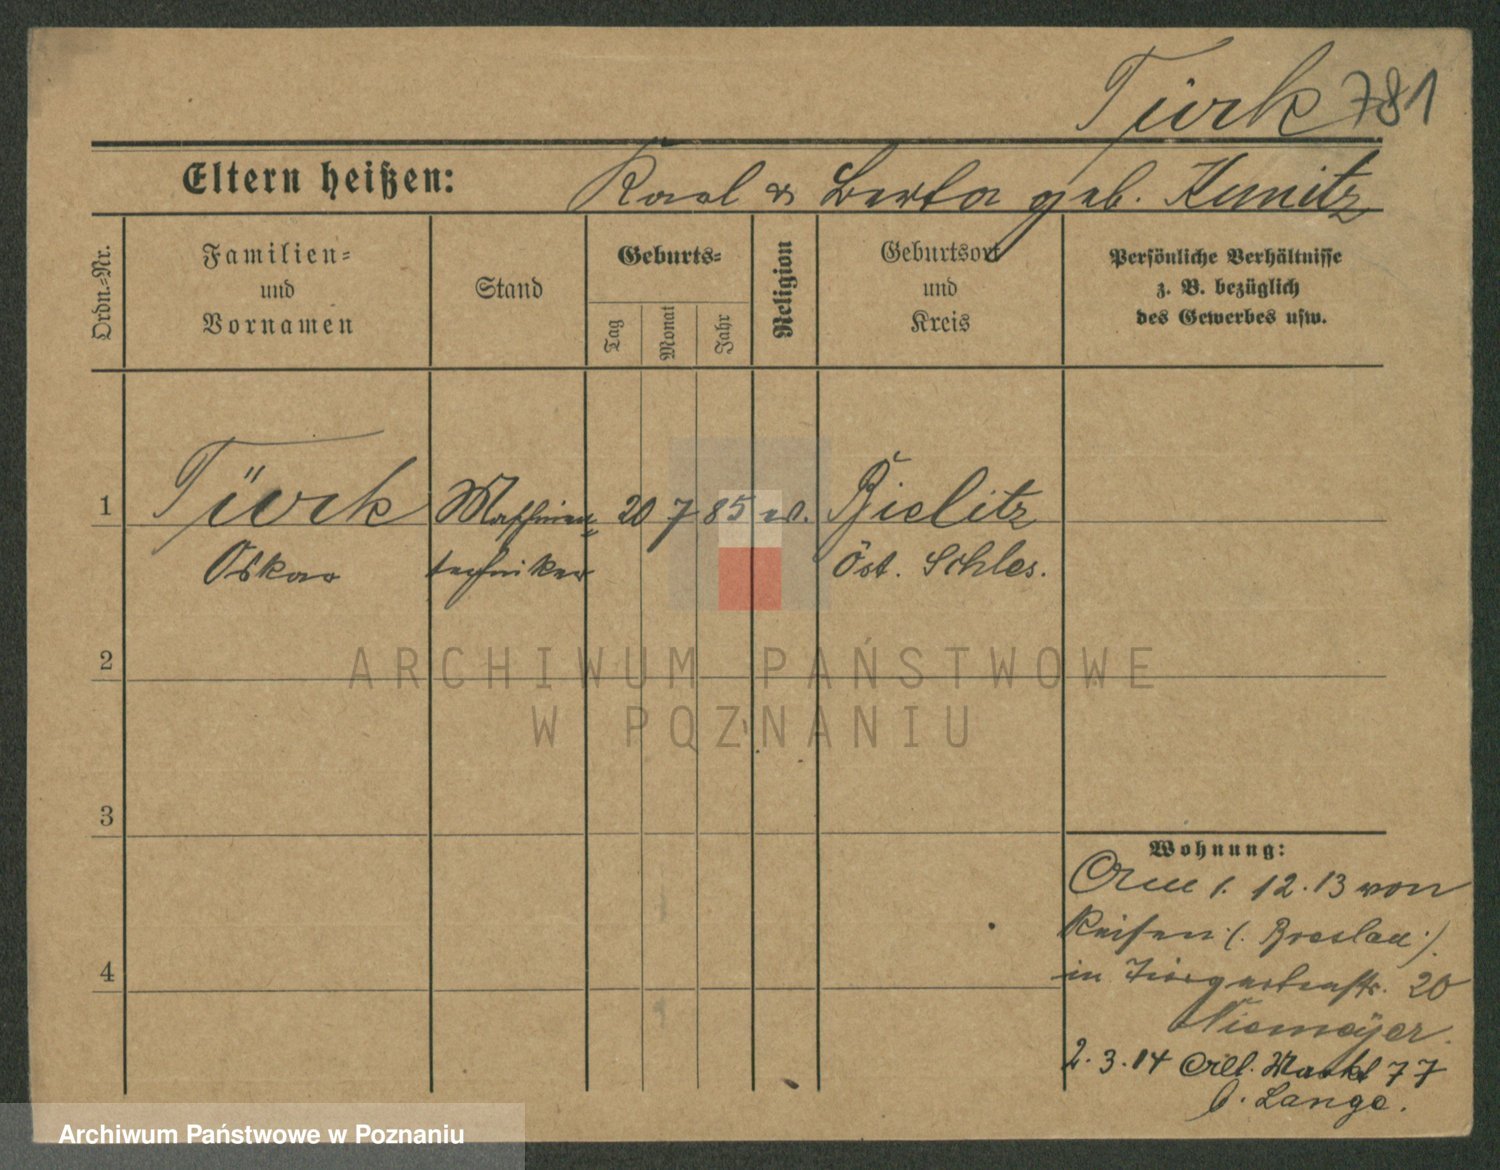 Türk 781
Eltern heißen: Karl & Berta geb. Kunitz
Ordn.-Nr.
Familien-
und
Vornamen
Stand
Geburts-
Tag
Monat
Jahr
Religion
Geburtsort
und
Kreis
Persönliche Verhältnisse
z. B. bezüglich
des Gewerbes usw.
1 Türk Maschinen- 20 7 85 ev. Bielitz
Oskar techniker Öst. Schles.
2
ARCHIWUM PAŃSTWOWE
W POZNANIU
3
Wohnung:
1. 12. 13 von
Reisen (. Breslau .)
4
in Tiergartenstr. 20
Niemeyer.
2. 3. 14 Alt. Markt 77
b. Lange.
Archiwum Państwowe w Poznaniu